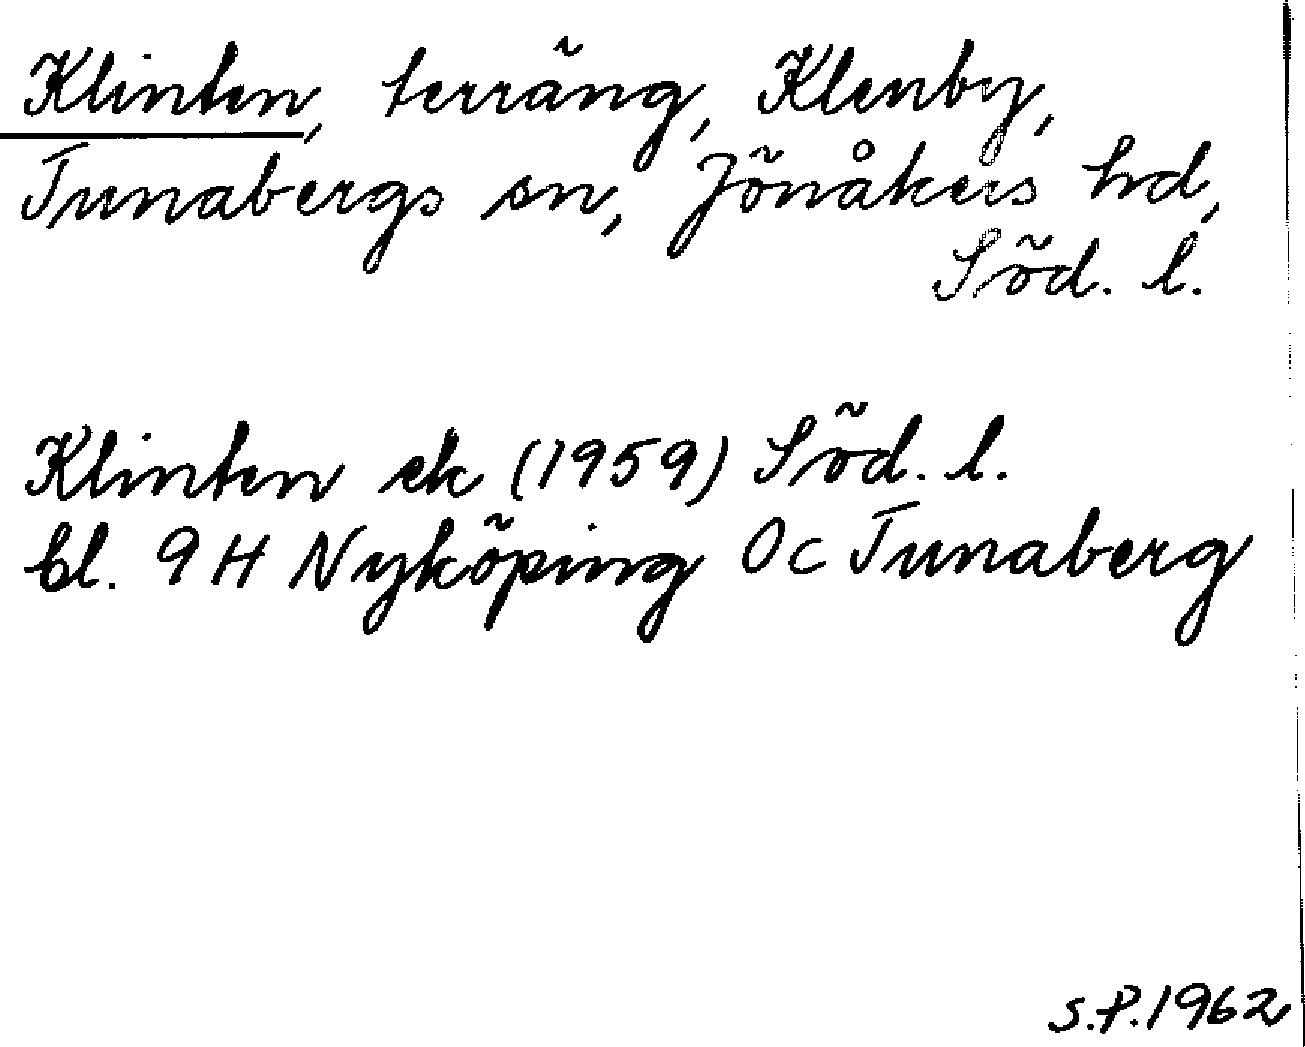 Klinten, terräng, Klenby,
Tunabergs sn, Jönåkers hd,
Söd. l.
Klinten ek (1959) Söd. l.
bl. 9 H Nyköping Oc Tunaberg
S.P. 1962